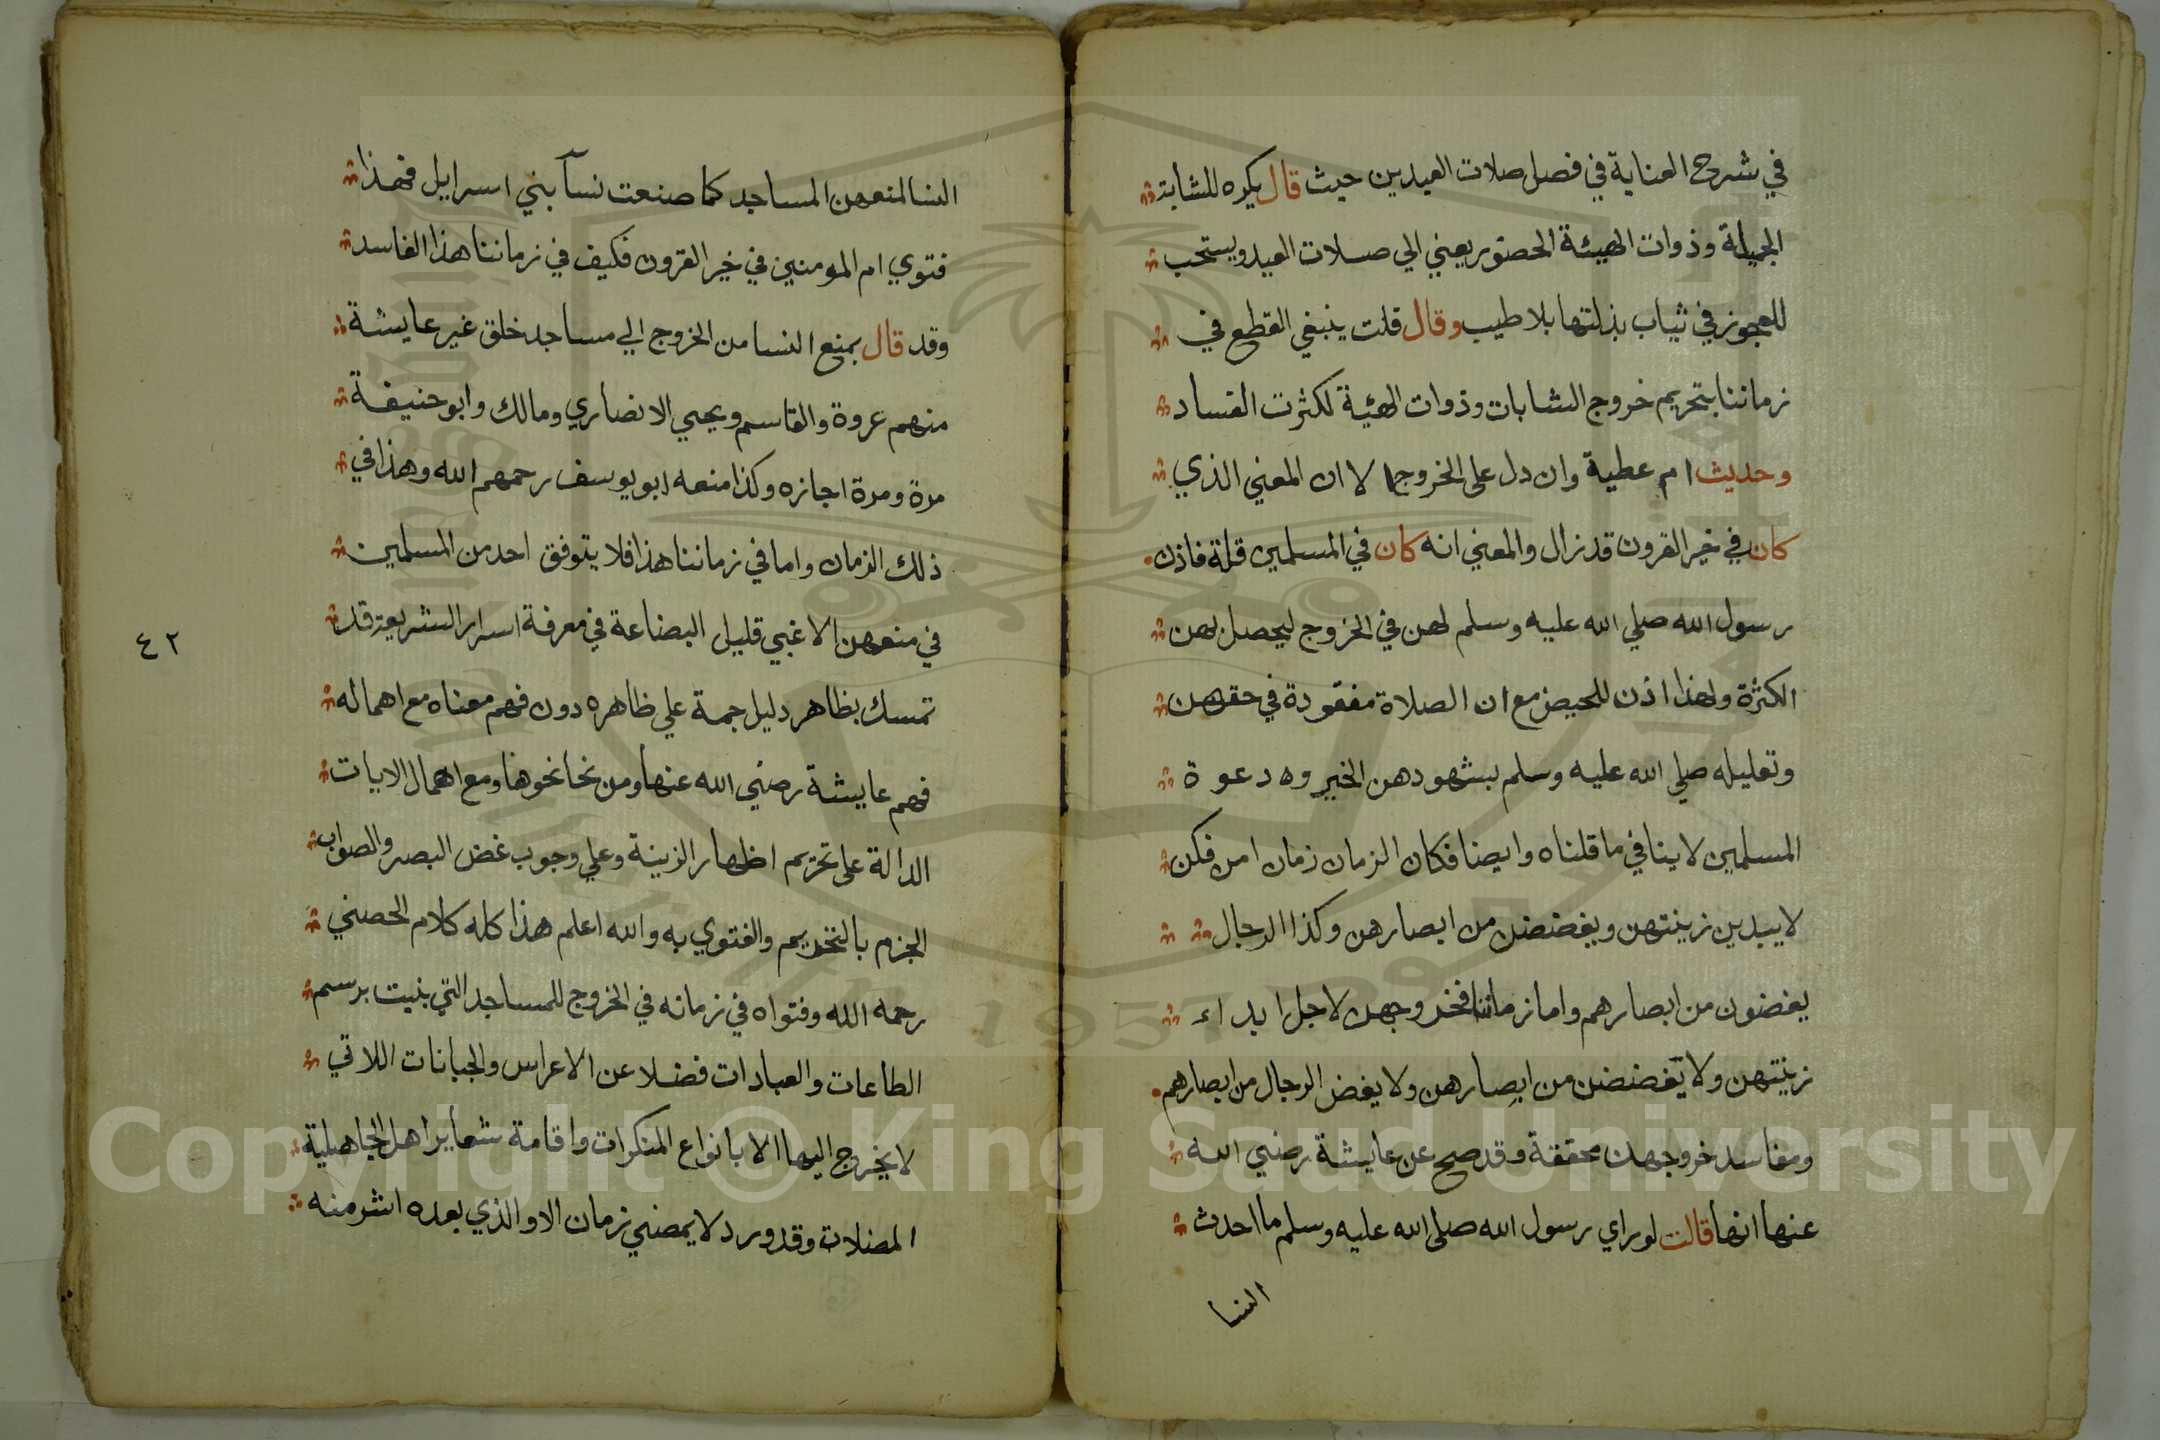 في شروح العناية في فصل صلات العيدين حيث قال يكره للشابة
الجميلة وذوات الهيئة الحضور يعني الي صلات العيد ويستحب
للعجوز في ثياب بذلتها بلا طيب وقال قلت ينبغي القطع في
زماننا بتحريم خروج الشابات وذوات الهئية لكثرت الفساد
وحديث ام عطية وان دل على الخروج الا ان المعني الذي
كان في خير القرون قد زال والمعني انه كان في المسلمين قلة فاذن
رسول الله صلي الله عليه وسلم لهن في الخروج ليحصل بهن
الكثرة ولهذا اذن للحيض مع ان الصلاة مفقودة في حقهن
وتعليله صلي الله عليه وسلم بشهودهن الخير وه دعوة
المسلمين لا ينافي ما قلناه وايضا فكان الزمان زمان امن فكن
لا يبدين زينتهن ويغضضن من ابصارهن وكذا الرجال
يغضون من ابصارهم واما زماننا فخروجهن لاجل ابداء
زينتهن ولا يغضضن من ابصارهن ولا يغض الرجال من ابصارهم
ومفاسد خروجهن محققة وقد صح عن عايشة رضي الله
عنها انها قالت لو راي رسول الله صلى الله عليه وسلم ما احدث
النسا
النسا لمنعهن المساجد كما صنعت نسآ بني اسرايل فهذا
فتوي ام المومنين في خير القرون فكيف في زماننا هذا الفاسد
وقد قال بمنع النسا من الخروج الي مساجد خلق غير عايشة
منهم عروة والقاسم ويحيي الانصاري ومالك وابو حنيفة
مرة ومرة اجازه وكذا منعه ابو يوسف رحمهم الله وهذا في
ذلك الزمان واما في زماننا هذا فلا يتوقف احد من المسلمين
في منعهن الا غبي قليل البضاعة في معرفة اسرار الشريعة قد
٤٢
تمسك بظاهر دليل حمة علي ظاهره دون فهم معناه مع اهماله
فهم عايشة رضي الله عنها ومن نحا نحوها ومع اهمال الايات
الدالة على تحريم اظهار الزينة وعلي وجوب غض البصر والصواب
الجزم بالتحريم والفتوي به والله اعلم هذا كله كلام الحصني
رحمه الله وفتواه في زمانه في الخروج للمساجد التي بنيت برسم
الطاعات والعبادات فضلا عن الاعراس والجبانات اللاتي
لا يخروج اليها الا بانواع المنكرات واقامة شعاير اهل الجاهلية
المضلات وقد ورد لا يمضي زمان الا والذي بعده اشر منه
Copyright © King Saud University
1957